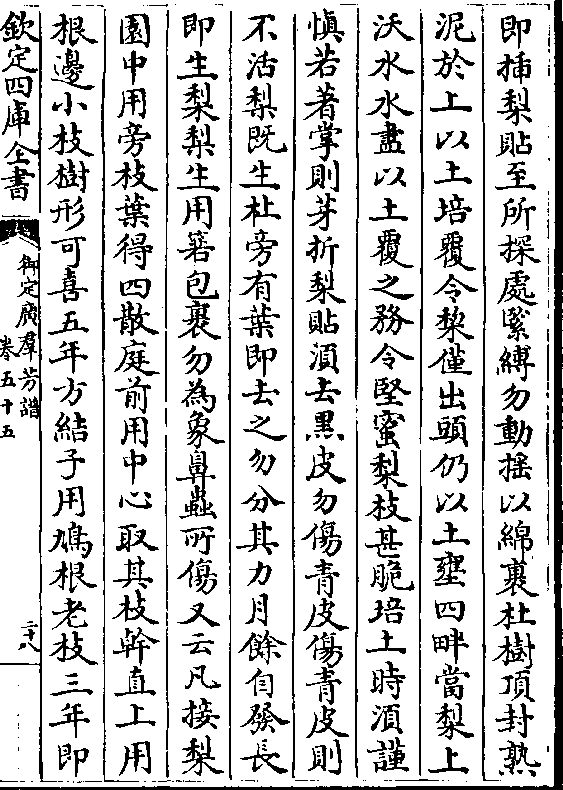 即揷梨貼至所探處緊縛勿動揺以綿裹杜樹頂封熟
泥於上以土培覆令棃僅出頭仍以土壅四畔當梨上
沃水水盡以土覆之務令堅蜜梨枝甚脆培土時湏謹
慎若著掌則芽折梨貼湏去黒皮勿傷青皮傷青皮則
不活梨既生杜旁有葉即去之勿分其力月餘自發長
即生梨梨生用箬包裹勿為象鼻蟲所傷又云凡接梨
園中用旁枝葉得四散庭前用中心取其枝幹直上用
根邊小枝樹形可喜五年方結子用鳩根老枝三年即
欽定四庫全書
御定廣羣芳譜
卷五十五
二十八